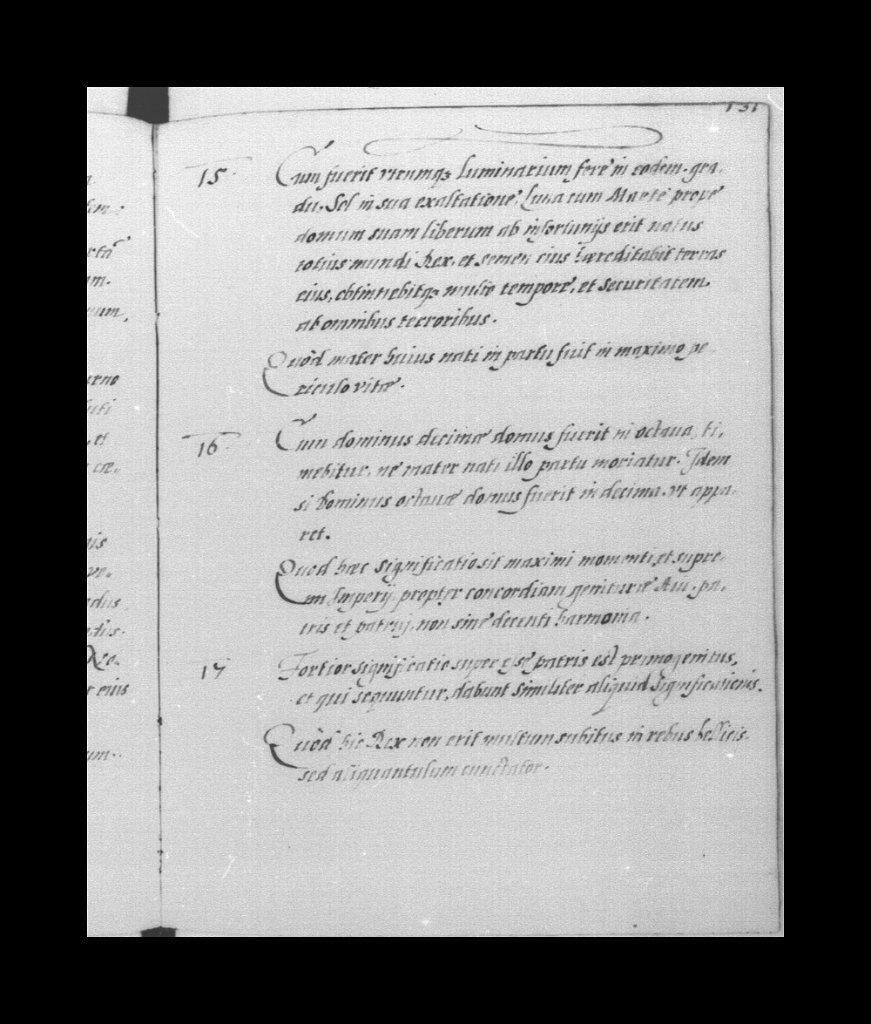 131
15. Cum fuerit utrumq; luminarium ferè in eodem gra-
du, Sol in sua exaltatione, Luna cum Marte prope
domum suam liberum ab infortunijs erit natus
totius mundi Rex, et semen eius hæreditabit terras
eius, obtinebitq; multo tempore, et securitatem
ab omnibus terroribus.
Quòd mater huius nati in partu fuit in maximo pe
riculo vitæ.
16. Cum dominus decimæ domus fuerit in octava, ti-
mebitur, ne mater nati illo partu moriatur. Idem
si Dominus octavæ domus fuerit in decima, ut appa-
ret.
Quod hæc significatio sit maximi momenti, et supre-
mi Imperij, propter concordiam genituræ Aui, pa-
tris et patrui, non sine decenti harmonia.
17 Fortior significatio super esse patris est primogenitus,
et qui sequuntur, dabunt similiter aliquid significationis.
Quòd hic Rex non erit multum subitus in rebus bellicis
sed aliquantulum cunctator.
ortâ
num,
erno
et
cæ-
eius